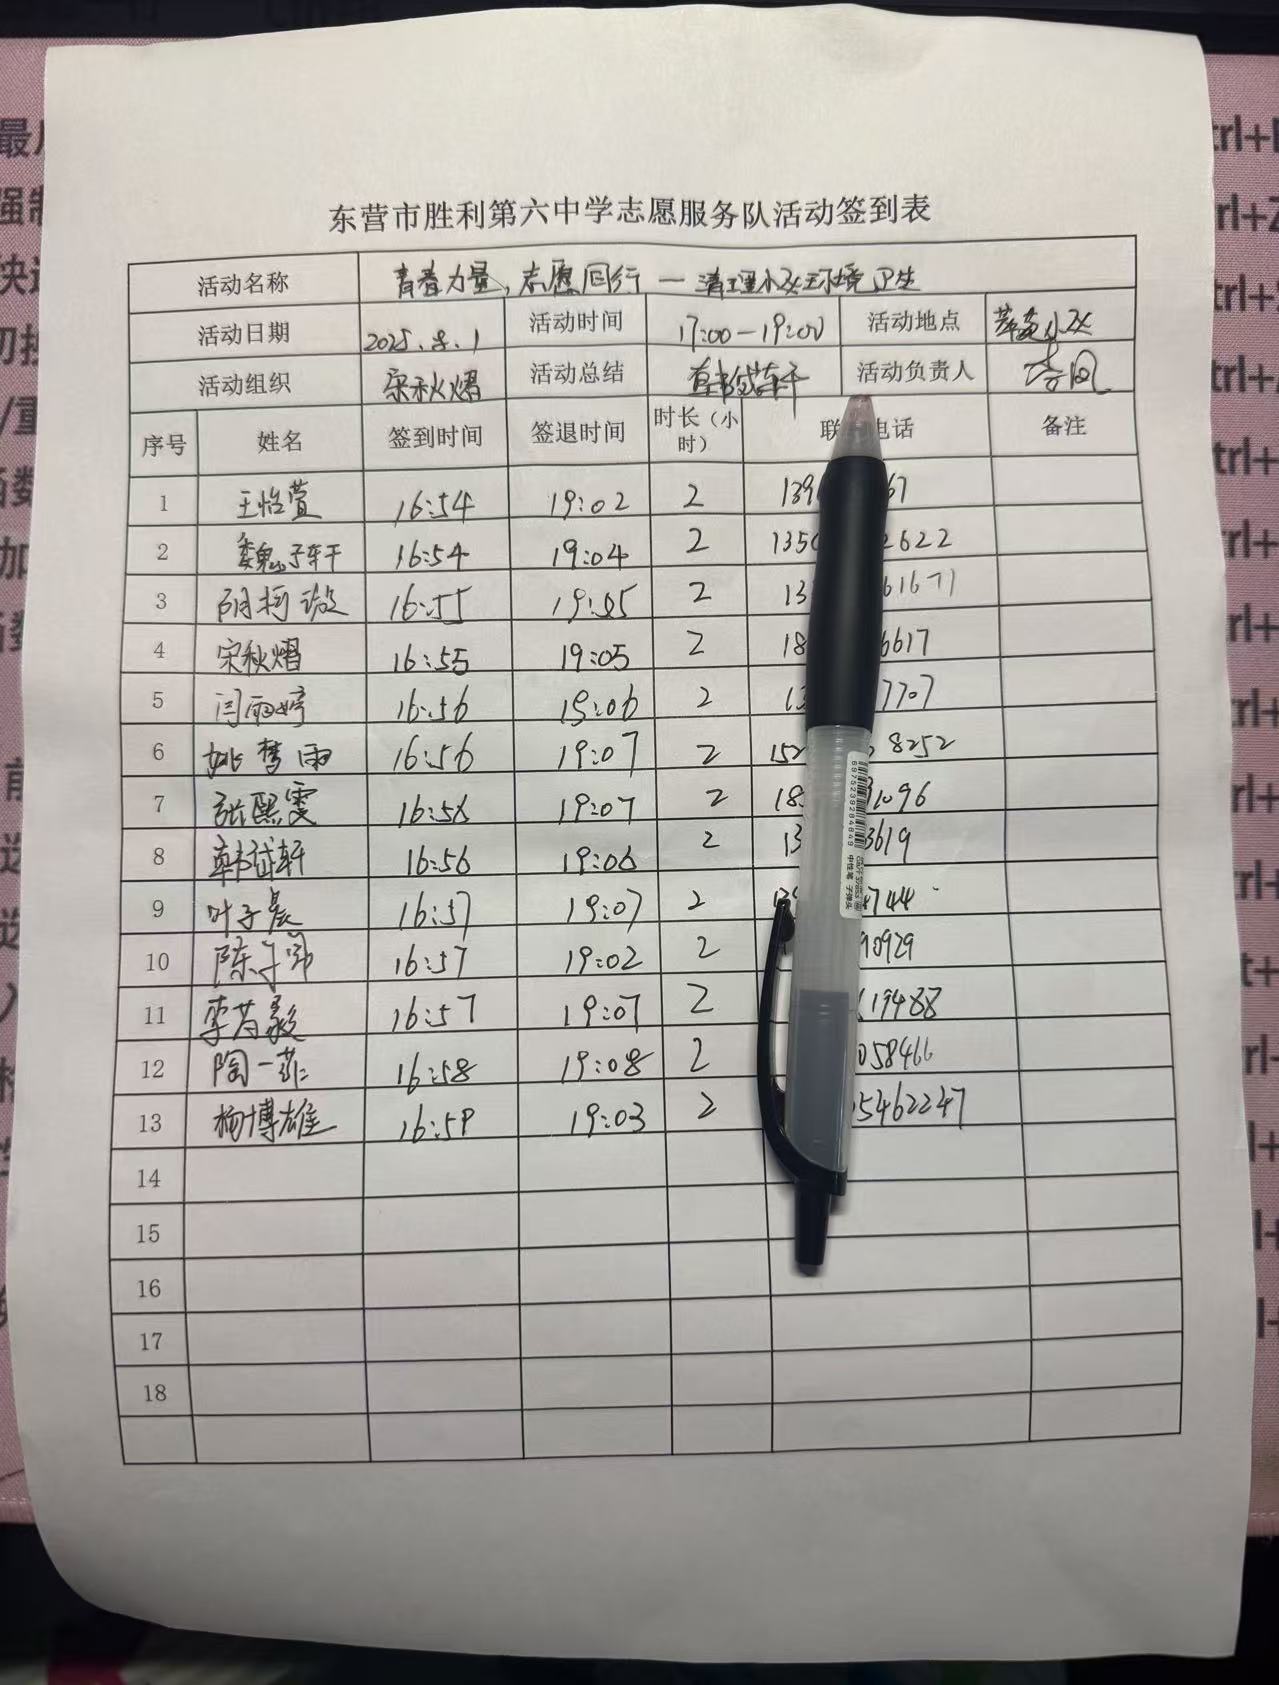 东营市胜利第六中学志愿服务队活动签到表
活动名称 青春力量，志愿同行 — 清理小区环境卫生
活动日期 2025.8.1 活动时间 17:00—19:00 活动地点 小区
活动组织 宋秋熠 活动总结 韩斌轩 活动负责人
序号 姓名 签到时间 签退时间 时长（小时） 联 电话 备注
1 王怡萱 16:54 19:02 2 139 67
2 魏子轩 16:54 19:04 2 135 2622
3 16:55 19:05 2 13 61671
4 宋秋熠 16:55 19:05 2 18 6617
5 闫雨婷 16:56 19:06 2 13 7707
6 姚梦雨 16:56 19:07 2 152 8252
7 张熙雯 16:56 19:07 2 18 1096
8 韩斌轩 16:56 19:06 2 13 3619
9 叶子晨 16:57 19:07 2 4744
10 陈子 16:57 19:02 2 90929
11 李 16:57 19:07 2 19488
12 陶一菲 16:58 19:08 2 058466
13 杨博雄 16:59 19:03 2 5462247
14
15
16
17
18
6975239284849
中性笔 子弹头